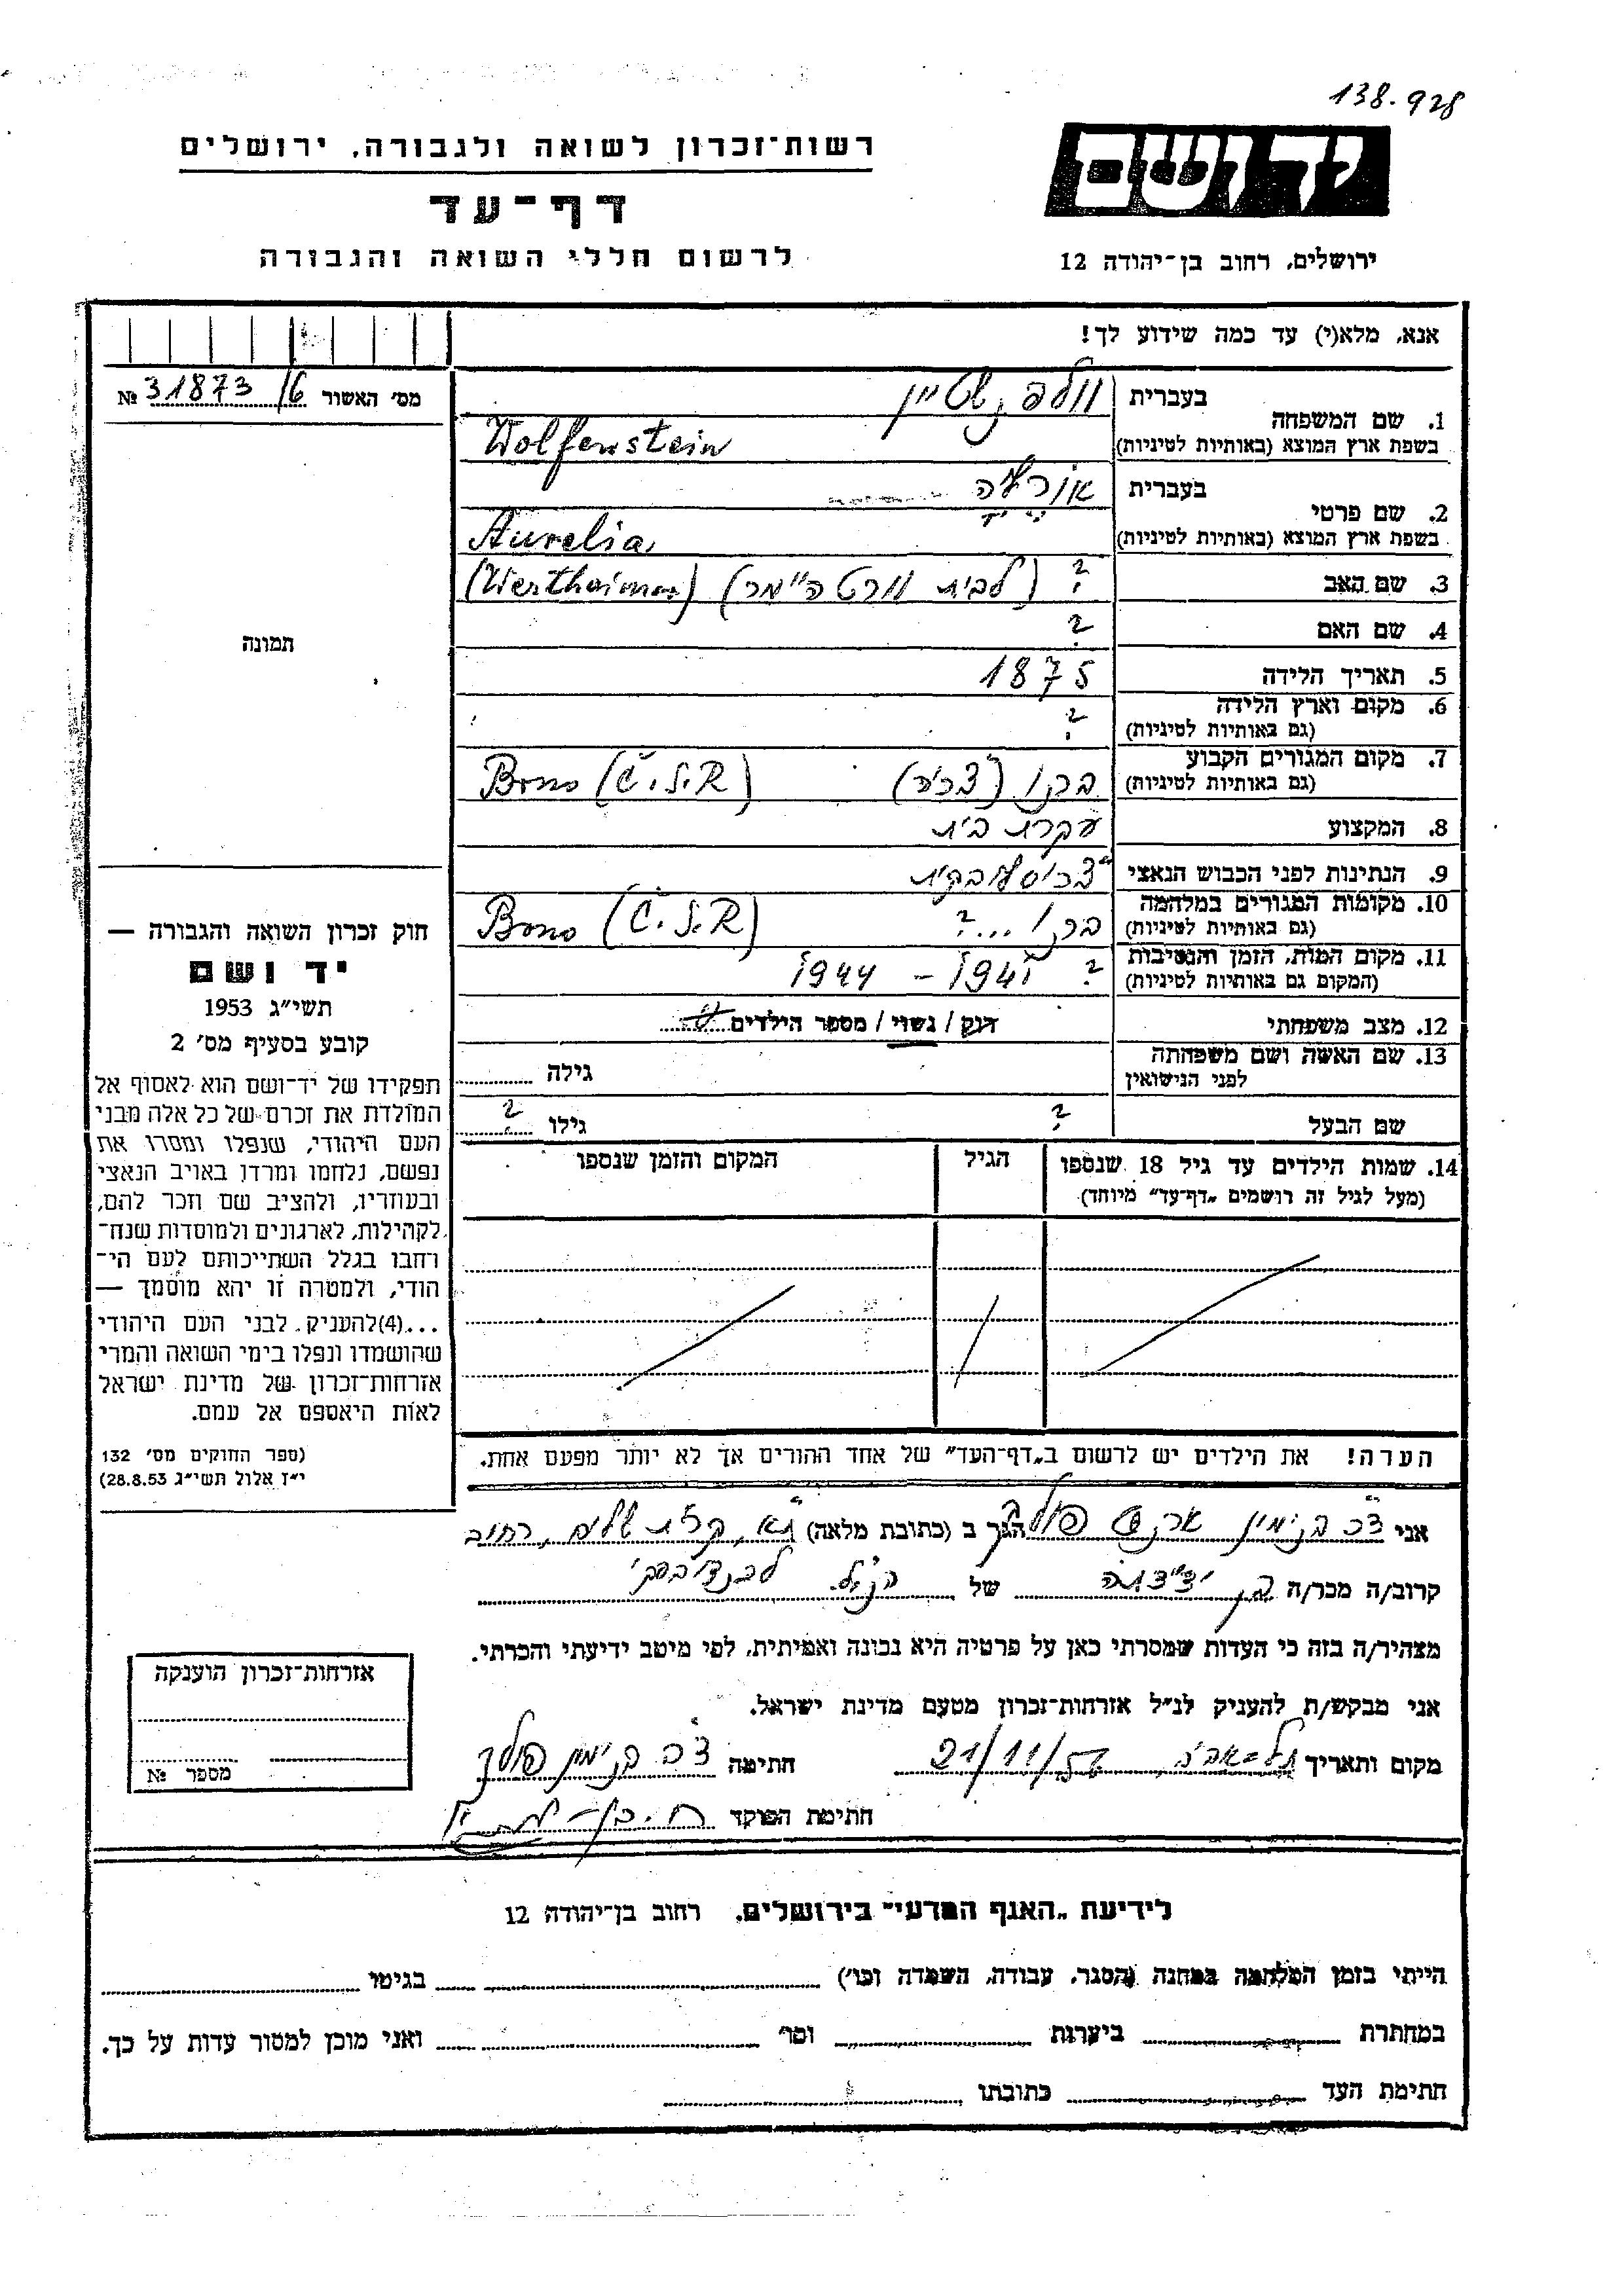 138.928
יד ושם
רשות־זכרון לשואה ולגבורה, ירושלים
דף־עד
לרשום חללי השואה והגבורה
ירושלים, רחוב בן־יהודה 12
אנא, מלא(י) עד כמה שידוע לך!
מס' האשור № 31873/6
תמונה
1. שם המשפחה
בעברית וולפנשטיין
בשפת ארץ המוצא (באותיות לטיניות) Wolfenstein
2. שם פרטי
בעברית אורליה
בשפת ארץ המוצא (באותיות לטיניות) Aurelia
3. שם האב ? (לבית ורטהיימר) (Wertheimer)
4. שם האם ?
5. תאריך הלידה 1875
6. מקום וארץ הלידה ?
(גם באותיות לטיניות)
7. מקום המגורים הקבוע ברנו (צ'כיה) Brno (Č.S.R)
(גם באותיות לטיניות)
8. המקצוע עקרת בית
9. הנתינות לפני הכבוש הנאצי צ'כוסלובקית
10. מקומות המגורים במלחמה ברנו ...? Brno (Č.S.R)
(גם באותיות לטיניות)
11. מקום המות, הזמן והנסיבות ? 1941 - 1944
(המקום גם באותיות לטיניות)
12. מצב משפחתי רוק / נשוי / מספר הילדים
13. שם האשה ושם משפחתה
לפני הנישואין
גילה
שם הבעל ? גילו ?
14. שמות הילדים עד גיל 18 שנספו
(מעל לגיל זה רושמים „דף־עד" מיוחד)
הגיל
המקום והזמן שנספו
הערה! את הילדים יש לרשום ב„דף־העד" של אחד ההורים אך לא יותר מפעם אחת.
חוק זכרון השואה והגבורה —
יד ושם
תשי"ג 1953
קובע בסעיף מס' 2
תפקידו של יד־ושם הוא לאסוף אל
המולדת את זכרם של כל אלה מבני
העם היהודי, שנפלו ומסרו את
נפשם, נלחמו ומרדו באויב הנאצי
ובעוזריו, ולהציב שם וזכר להם,
לקהילות, לארגונים ולמוסדות שנח־
רחבו בגלל השתייכותם לעם הי־
הודי, ולמטרה זו יהא מוסמך —
...(4)להעניק לבני העם היהודי
שהושמדו ונפלו בימי השואה והמרי
אזרחות־זכרון של מדינת ישראל
לאות היאספם אל עמם.
(ספר החוקים מס' 132
י"ז אלול תשי"ג 28.8.53)
אני בנימין ארנסט פולק הגר ב (כתובת מלאה) ת"א, קרית שלום, רחוב
קרוב/ה מכר/ה של הנ"ל
מצהיר/ה בזה כי העדות שמסרתי כאן על פרטיה היא נכונה ואמיתית, לפי מיטב ידיעתי והכרתי.
אני מבקש/ת להעניק לנ"ל אזרחות־זכרון מטעם מדינת ישראל.
מקום ותאריך תל-אביב 21/11/56 חתימה בנימין פולק
חתימת הפוקד
אזרחות־זכרון הוענקה
מספר №
לידיעת „האגף המדעי" בירושלים, רחוב בן־יהודה 12
הייתי בזמן המלחמה במחנה (הסגר, עבודה, השמדה וכו') בגיטו
במחתרת ביערות וכו' ואני מוכן למסור עדות על כך.
חתימת העד כתובתו